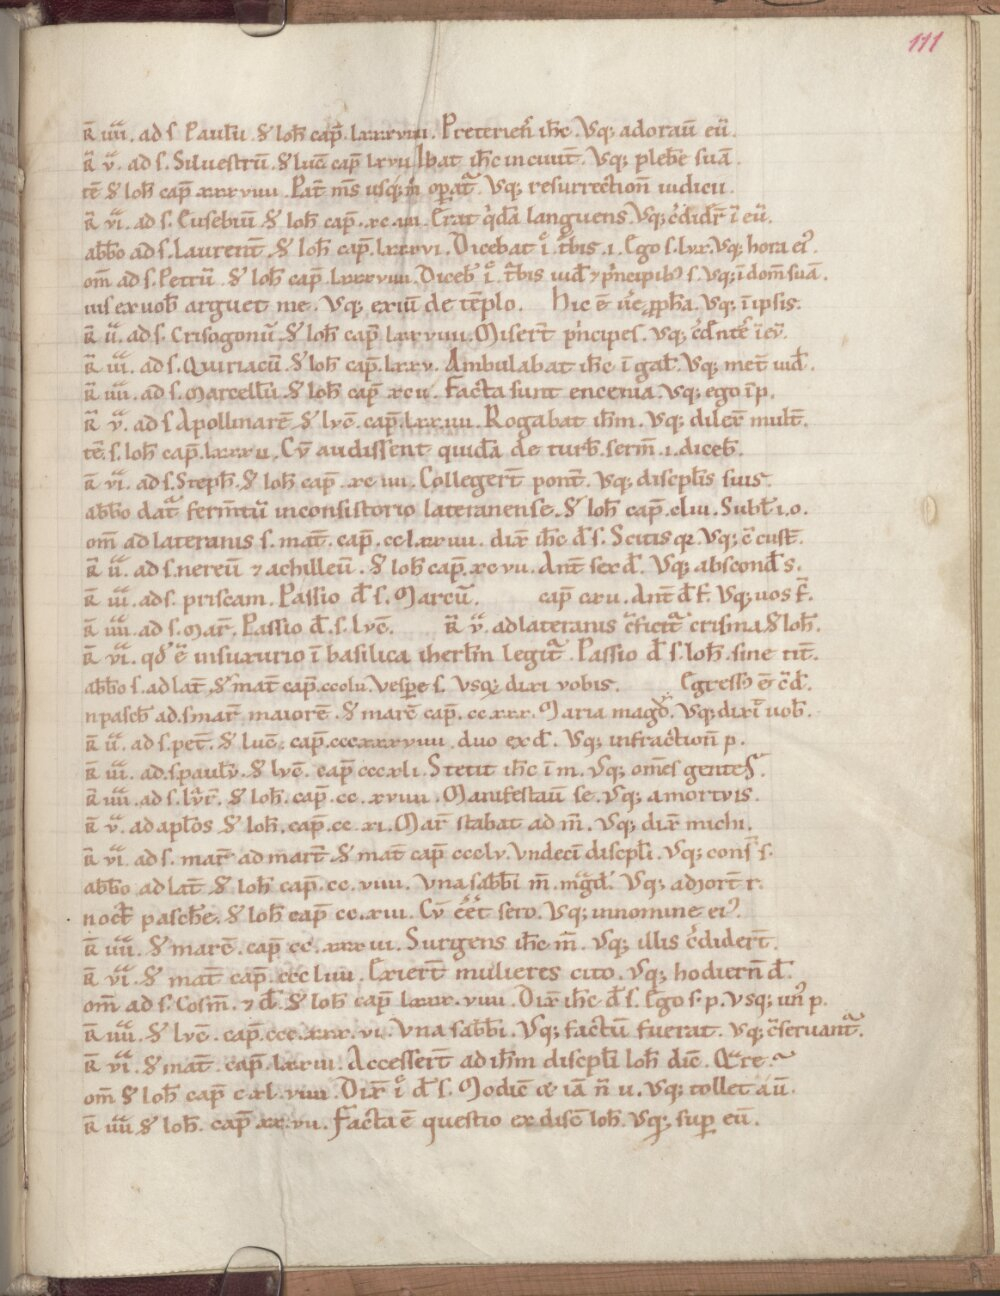 111
k̄ iiii. ad s. Paulū. S̄ Ioh̄ cap̄. lxxxviiii. Preterien̄ ih̄c. Vsq; adorauī eū.
k̄ v. ad s. Siluestrū. S̄ Luc̄ cap̄ lxvii Ibat ih̄c in ciuit̄. Vsq; plebē suā.
tē S̄ Ioh̄ cap̄ xxxviiii. Pat̄ m̄s usq; m̄ opat̄. Vsq; resurrection̄ iudicii.
k̄ vi. ad s. Eusebiū S̄ Ioh̄ cap̄. xc.iii. Erat q̄dā languens Vsq; c̄dider̄ ī eū.
abb̄o ad s. Laurent̄. S̄ Ioh̄ cap̄. lxxxvi. Dicebat i t̄bis. i. Ego s. lux. Vsq; hora ei.
om̄ ad s. Petrū. S̄ Ioh̄ cap̄ lxxxviiii. Diceb̄ i. t̄bis iud̄ & p̄ncipib s. Vsq; ī dom̄ suā.
uis ex uob̄ arguet me. Vsq; exiū de tēplo. Hic ē ūe pph̄a. Vsq; ī ipsis.
k̄ ii. ad s. Crisogonū. S̄ Ioh̄ cap̄ lxxviiii. Miser̄t p̄ncipes. Vsq; c̄dntes̄ ī eū.
k̄ iii. ad s. Quiriacū S̄ Ioh̄ cap̄. lxxv. Ambulabat ih̄c ī gal̄. Vsq; met̄ iud̄.
k̄ iiii. ad s. Marcellū. S̄ Ioh̄ cap̄ xcii. Facta sunt encenia. Vsq; ego ī p.
k̄ v. ad s Apollinarē S̄ Lvc̄ cap̄. lxx.iiii. Rogabat ih̄m. Vsq; dilex̄ mult̄.
tē. s. Ioh̄ cap̄. lxxxii. Cv̄ audissent quidā de turb̄. serm̄. i. diceb̄.
k̄ vi. ad s. Steph̄. S̄ Ioh̄ cap̄. xc iiii. Colleger̄t pont̄. Vsq; discipl̄is suis.
abb̄o dat̄ ferm̄tū in consistorio lateranense. S̄ Ioh̄ cap̄. cliii. Subl̄. i. o.
om̄ ad lateranis s. mat̄. cap̄. cclxxiiii. dix̄ ih̄c d̄ s. Scitis qr. Vsq; c̄ cust̄.
k̄ ii. ad s. nereū & achilleū. S̄ Ioh̄ cap̄. xcvii. Ant̄ sex d̄. Vsq; abscond̄ s.
k̄ iii. ad s. priscam. Passio d̄ s. Marcū. cap̄ cxii. Ant̄ d̄ f. Vsq; uos f̄.
k̄ iiii. ad s. Mar̄. Passio d̄. s. Lvc̄. k̄ v. ad lateranis c̄ficit̄ crisma. S̄ Ioh̄.
k̄ vi. qd̄ ē in suxurio ī basilica iherl̄m legit̄. Passio d̄ s. Ioh̄. sine tit̄.
abb̄o s. ad lat̄ S̄ mat̄ cap̄. ccclii. Vespe s. Vsq; dixi vobis. Egress ē c̄d̄.
n pasch̄ ad. s. mar̄ maiorē. S̄ marc̄ cap̄. cc.xxx. Maria magd̄. Vsq; dixit̄ uob̄.
k̄ ii. ad s. pet̄. S̄ Luc̄. cap̄. cccxxxviiii. duo ex d̄. Vsq; infraction̄ p.
k̄ iii. ad. s. paulv̄. S̄ Lvc̄. cap̄ cccxli. Stetit ih̄c ī m. Vsq; om̄es gentes.
k̄ iiii. ad. s. Lv̄r̄. S̄ Ioh̄. cap̄. cc. xviiii. Manifestauī se. Vsq; a mortvis.
k̄ v. ad apl̄os S̄ Ioh̄. cap̄. cc. xi. Mar̄ stabat ad m̄. Vsq; dix̄ michi.
k̄ vi. ad s. mar̄ ad mart̄ S̄ mat̄ cap̄ ccclv. Vndeci discpl̄i. Vsq; cons̄ s.
abb̄o ad lat̄ S̄ Ioh̄ cap̄. cc. viiii. Vna sabb̄i m̄. mgd̄. Vsq; adhort̄ r.
noct̄ paschē. S̄ Ioh̄ cap̄ cc. xiii. Cv̄ ēet̄ sero. Vsq; in nomine ei.
k̄ iiii. S̄ marc̄. cap̄. cc. xxxiii. Surgens ih̄c m̄. Vsq; illis c̄didert̄.
k̄ vi. S̄ mat̄ cap̄. cccliiii. Exiert̄ mulieres cito. Vsq; hodiern̄ d̄.
om̄ ad s. Cosm̄. & d̄. S̄ Ioh̄ cap̄ lxxx. viiii. Dix̄ ih̄c d̄ s. Ego s. p. Vsq; un p.
k̄ iiii. S̄ Lvc̄. cap̄. ccc. xxx. vi. Vna sabb̄i. Vsq; factū fuerat. Vsq; c̄seruant̄.
k̄ vi. S̄ mat̄. cap̄. lxxiii. Accessert̄ ad ih̄m discpl̄i Ioh̄ dic̄. Qre
om̄ S̄ Ioh̄ cap̄ cxl. viiii. Dix̄ i d̄ s. Modic̄ & iā n̄ u. Vsq; tollet aū.
k̄ iiii S̄ Ioh̄. cap̄ xx. vii. Facta ē questio ex disc̄ Ioh̄. Vsq; sup eū.